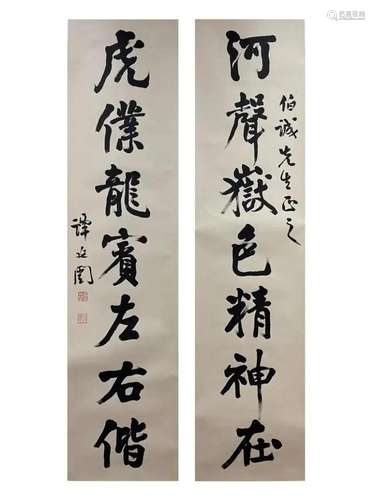 河聲嶽色精神在
伯誠先生正之
虎僕龍賓左右偕
譚延闓